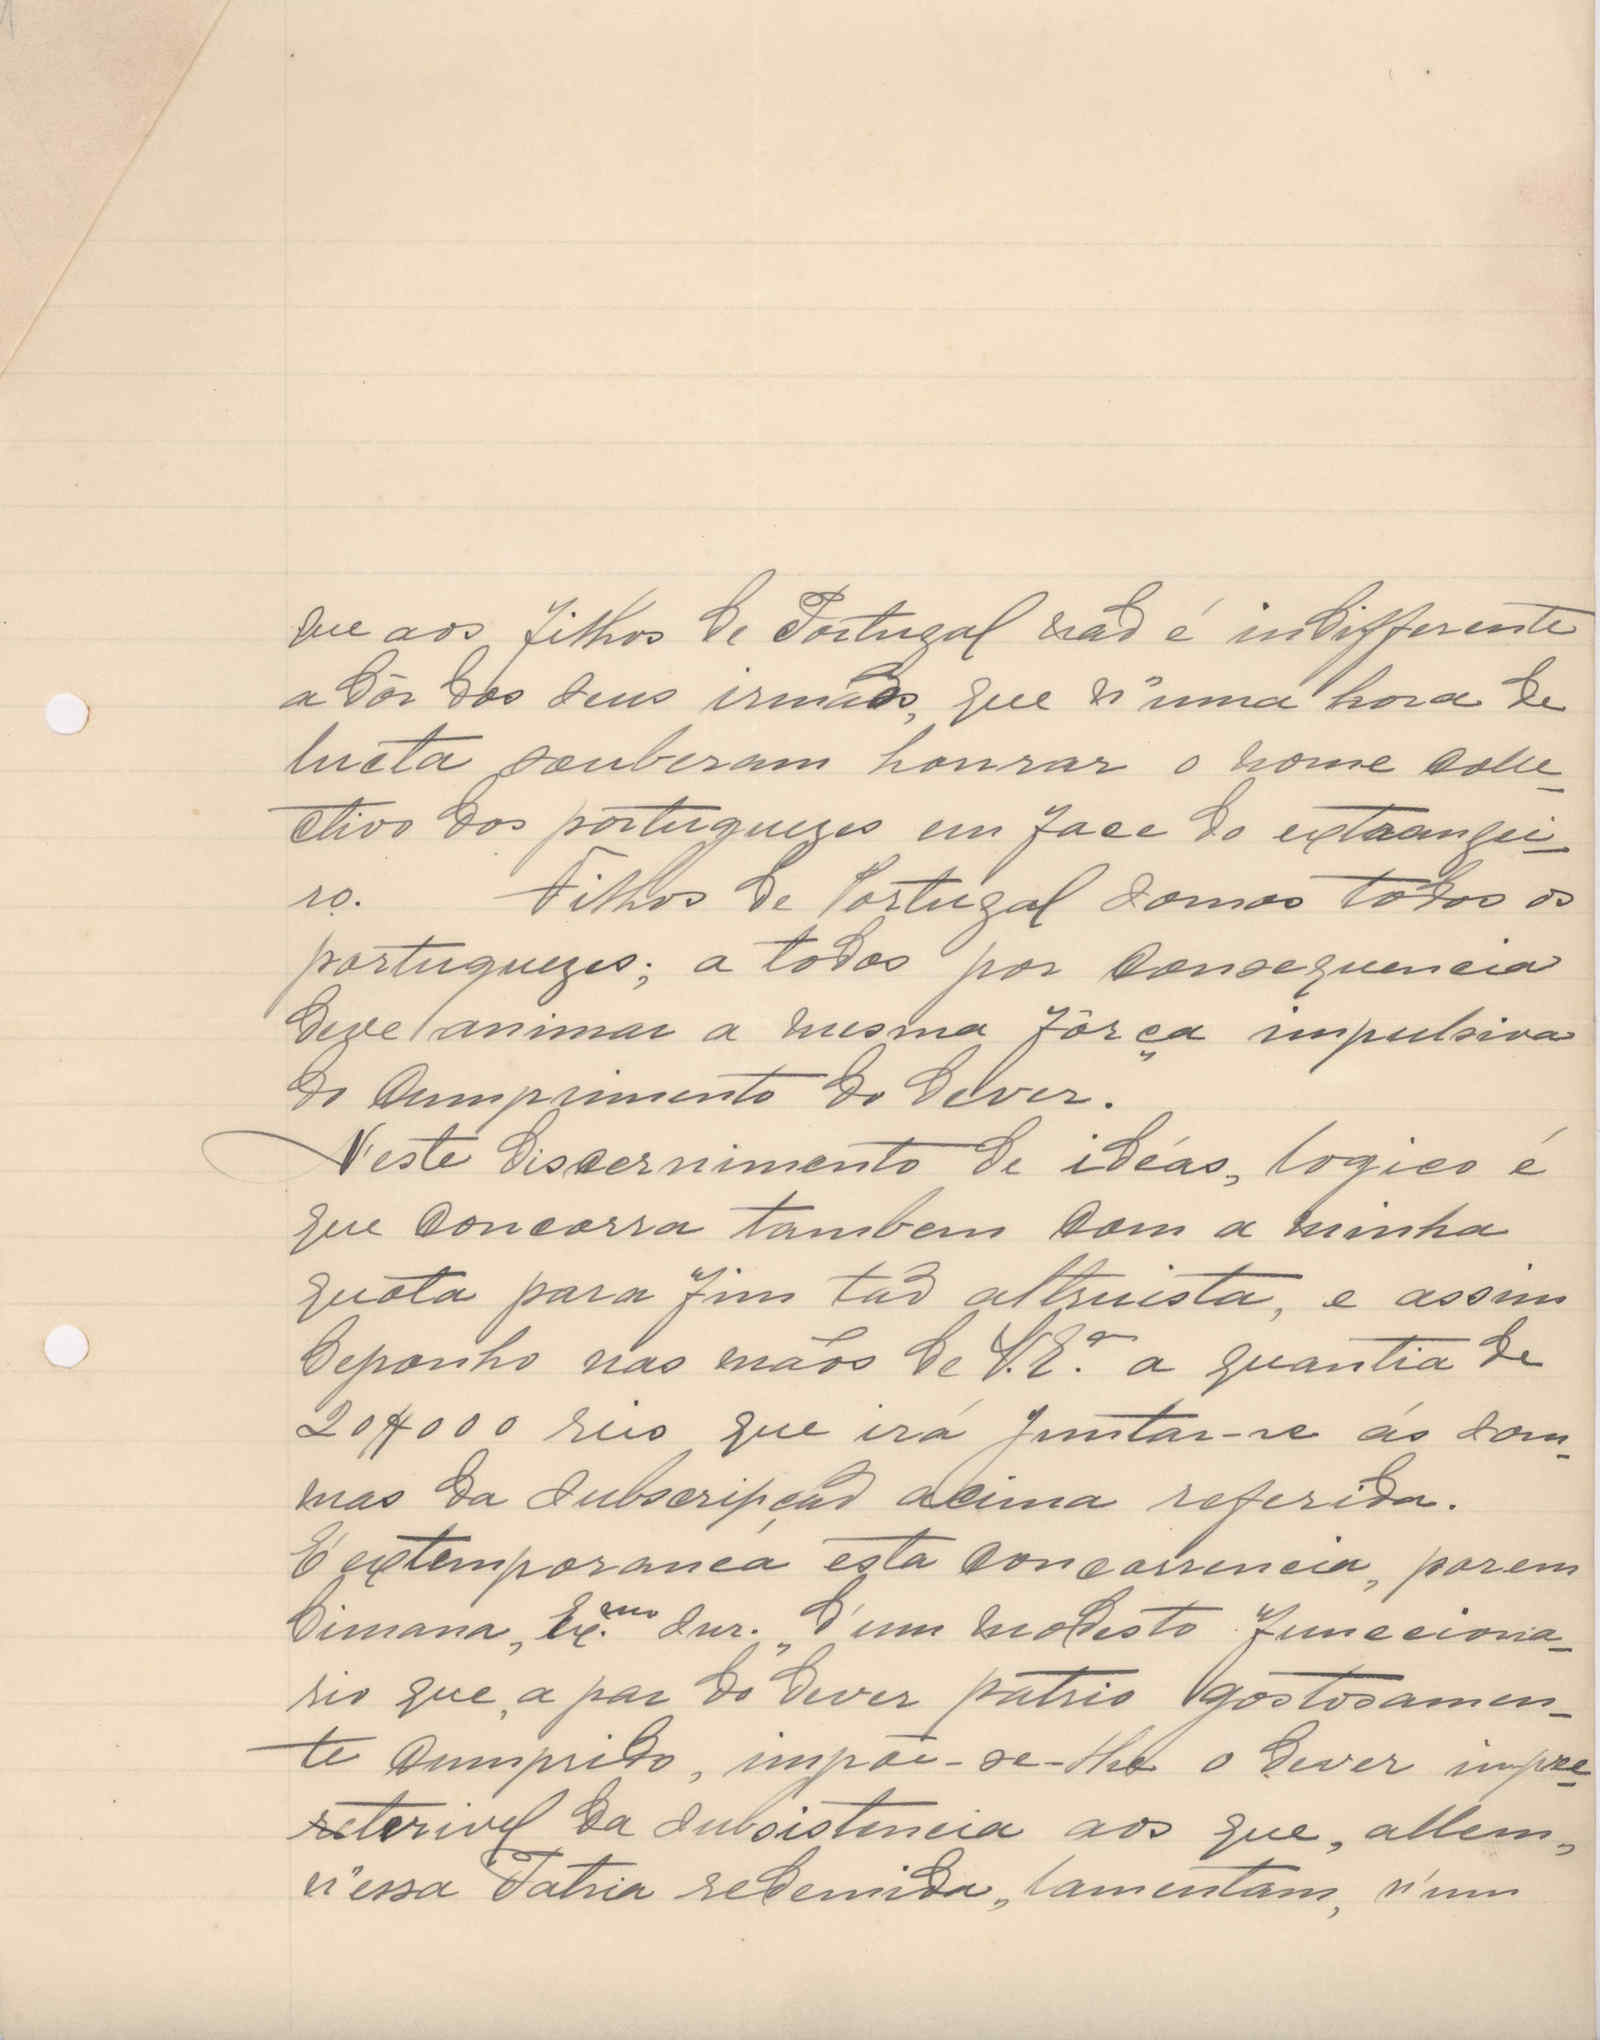 que aos filhos de Portugal não é indifferente
a dôr dos seus irmãos, que n'uma hora de
lucta souberam honrar o nome colle-
ctivo dos portuguezes em face do extrangei-
ro. Filhos de Portugal somos todos os
portuguezes; a todos por consequencia
deve animar a mesma fôrça impulsiva
do cumprimento do dever.
Neste discernimento de idéas, logico é
que concorra tambem com a minha
quota para fim tão altruista, e assim
deponho nas mãos de V. E.ª a quantia de
20$000 reis que irá juntar-se ás som-
mas da subscripção acima referida.
É extemporanea esta concorrencia, porem
dimana, Ex.mo Snr., d'um modesto funcciona-
rio que, a par do dever patrio gostosamen-
te cumprido, impõe-se-lhe o dever impre-
terivel da subsistencia aos que, allem,
n'essa Patria redemida, lamentam, n'um